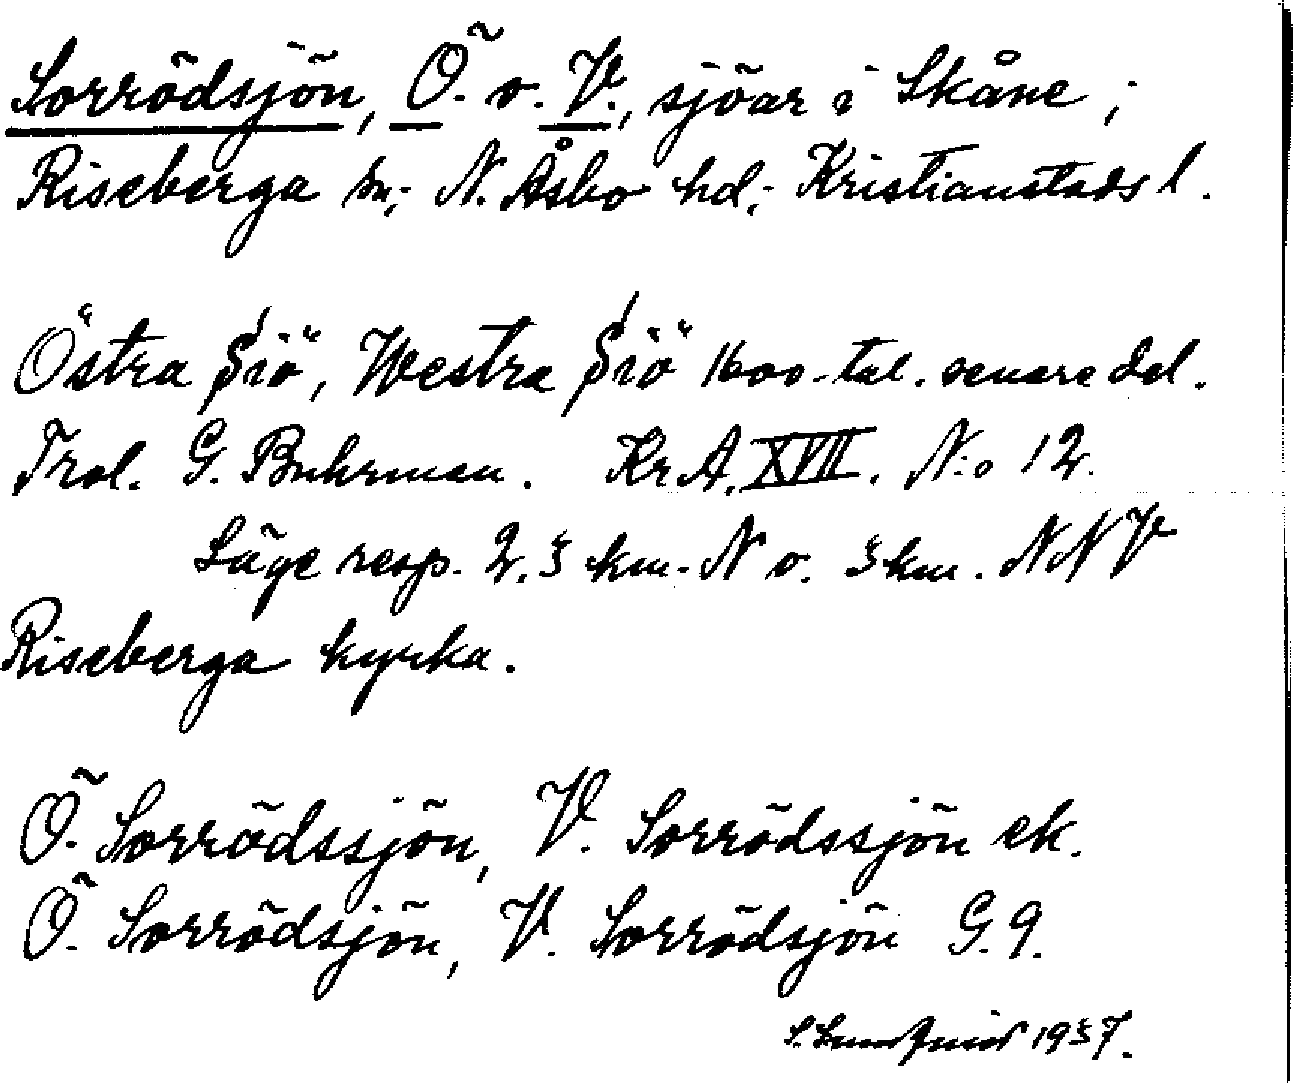 Sorrödsjön, Ö. o. V., sjöar i Skåne;
Riseberga sn; N. Åsbo hd; Kristianstads l.
Östra Siö, Westra Siö 1600-tal. senare del.
Trol. G. Buhrman. Kr A. XVII. N:o 12.
Läge resp. 2.5 km. N o. 3 km. NNV
Riseberga kyrka.
Ö. Sorrödssjön, V. Sorrödssjön ek.
Ö. Sorrödsjön, V. Sorrödsjön G. 9.
S. 1937.